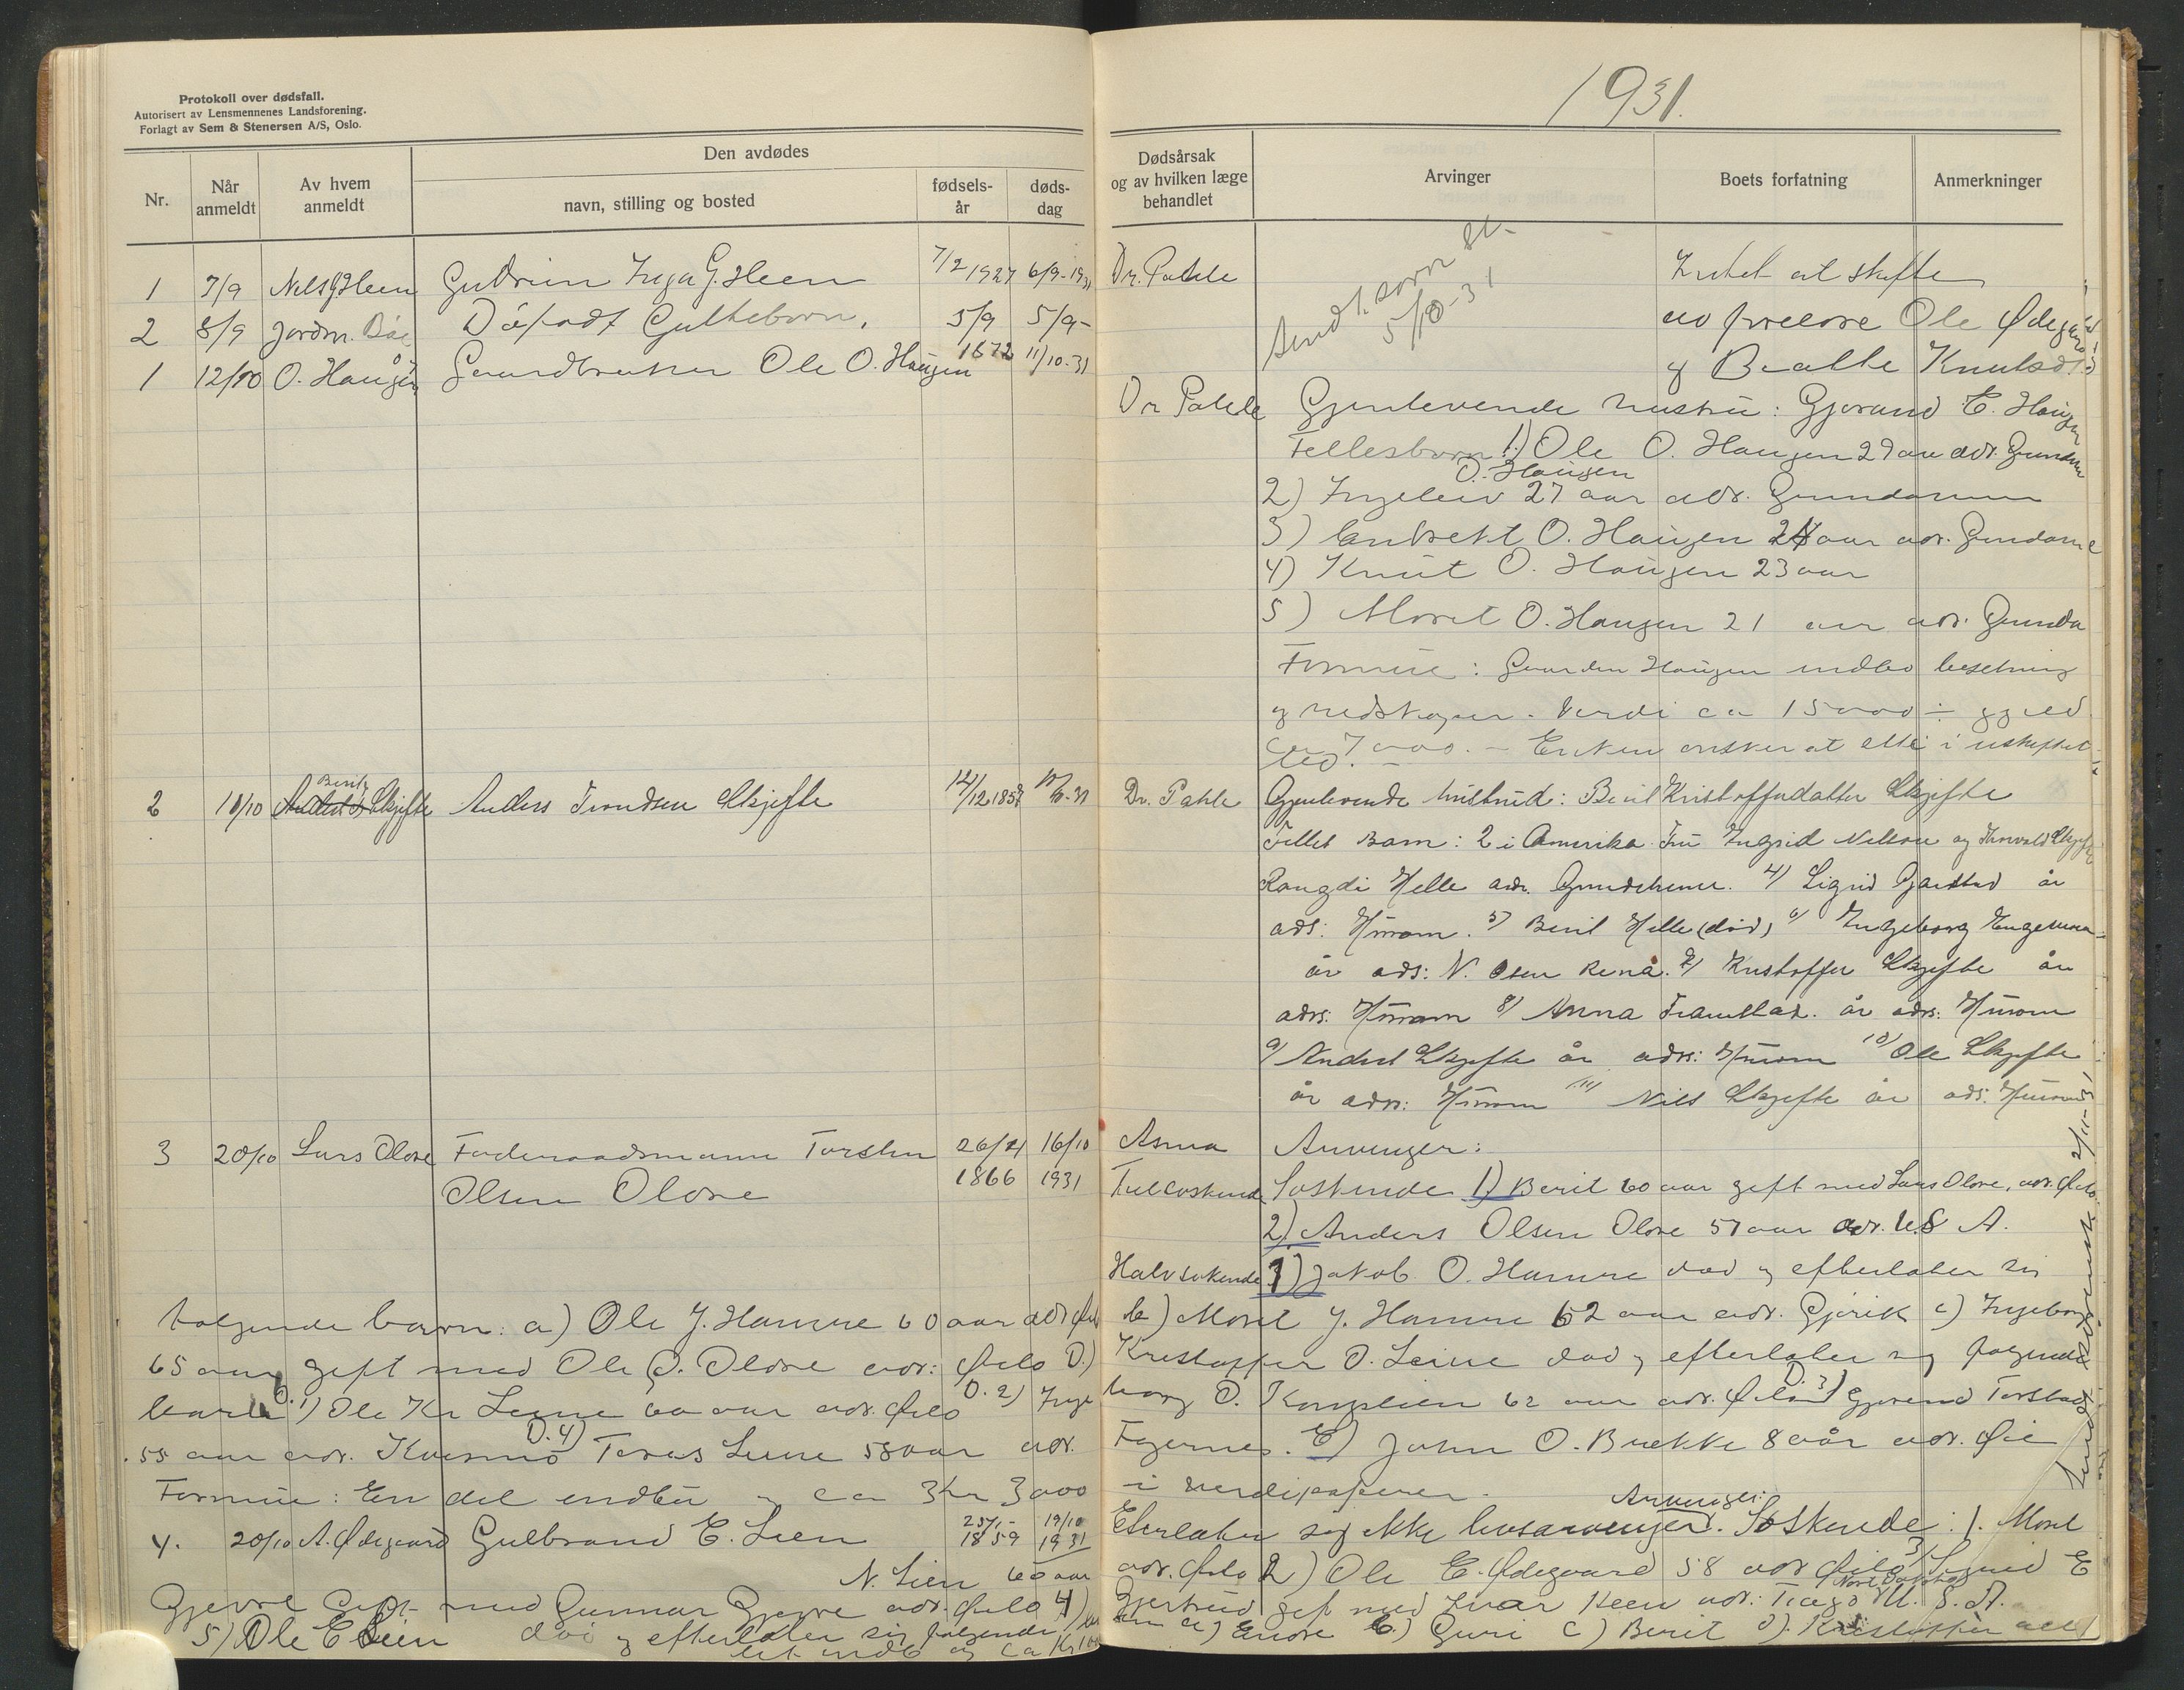 Protokoll over dødsfall.
Autorisert av Lensmennenes Landsforening.
Forlagt av Sem & Stenersen A/S, Oslo.
1931.
Nr.
Når anmeldt
Av hvem anmeldt
Den avdødes
navn, stilling og bosted
fødsels-år
døds-dag
Dødsårsak og av hvilken læge behandlet
Arvinger
Boets forfatning
Anmerkninger
1 7/9 Nels G Heen Gudrun Inga G. Heen 7/2 1927 6/9-1931 Dr. Pahle Intet at skifte
2 8/9 Jordm. Døfødt Guttebarn. 5/9 5/9- av forelore Ole Ødegård
og Beatte Knutsd.
5/10-31
1 12/10 O. Haugen Gaardbruker Ole O. Haugen 1872 11/10-31
Dr Pahle Gjenlevende hustru: Gjørand E. Haugen
Fellesbarn 1) Ole O. Haugen 29 aar adr. Grunda
O. Haugen
2) Ingeleiv 27 aar adr.
3) Enbrekt O. Haugen 24 aar adr.
4) Knut O. Haugen 23 aar
5) Marit O. Haugen 21 aar adr.
Formue: Gaarden Haugen indbo besetning
og redskaper. Verdi ca 15000 ÷ gjeld
ca 7000. - Enken ønsker at sitte i uskiftet
2 10/10 Berit Skjefte Anders Trondsen Skjefte 14/12 1857 10/10-31 Dr. Pahle Gjenlevende hustrud: Berit Kristoffersdatter Skjefte
Felles Barn: 2 i Amerika Fru Ingrid Nelson og Thorvald Skjefte
Rangdi Helle adr. 4) Sigrid Gjarstad år
ads: Hurom. 5) Berit Helle (død) 6) Ingeborg
år ads: N. Osen Rena. 7) Kristoffer Skjefte år
adrs: Hurom 8) Anna Framstad. år adrs: Hurom
9) Anders Skjefte år adrs: Hurom 10) Ole Skjefte
år adrs: Hurom 11) Nils Skjefte år ads: Hurom
3 20/10 Lars Olore Føderaadsmann Torsten 26/4 16/10 Asma Arvinger:
Olsen Olore 1866 1931 Helsøskende Søskende 1) Berit 60 aar gift med Lars Olore, adr. Øilo
2) Anders Olsen Olore 57 aar adr. U.S A.
Halvsøskende 3) Jakob O. Hamre død og efterlater sig
følgende barn: a) Ole J. Hamre 60 aar adr Øilo b) Marit J. Hamre 62 aar adr. Gjøvik c) Ingeborg
65 aar gift med Ole O. Olore adr: Øilo D.) Kristoffer O. Leine død og efterlater sig følgende
barn D. 1) Ole Kr Leine 60 aar adr. Øilo D. 2) Inge borg O. 62 aar adr. Øilo D. 3) Gjørand Torstad
55 aar adr. Kvismo D. 4) Leine 58 aar adr. Fagernes. E) John O. Brekke 80 år adr. Øie
Formue: En del indbu og ca 3 Kr 3000 i verdipapirer.
2/11-31
Arvinger:
4. 20/10 A. Ødegaard Gulbrand E. Lien 25/1- 1859 19/10 1931 Eterlater sig ikke livsarvinger. Søskende: 1. Marit
N. Lien 60 aar adr. Øilo 2) Ole E. Ødegaard 58 adr Øilo 3) Sigrid E
Gjevre Gift med Gunnar Gjevre adr. Øilo 4) Gjertrud gift med Ivar Heen adr: Fargo Nord Dakota U. S. A.
5) Ole E Lien død og efterlater sig følgende barn a) Endre b) Guri c) Berit d) Kristoffer alle
litt indb og ca Kr 100